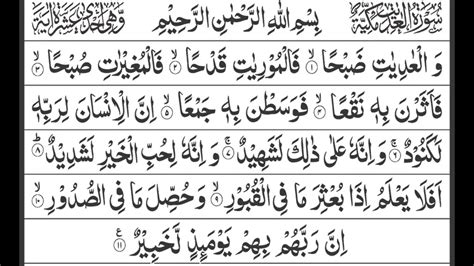 سُوْرَةُ الْعٰدِيٰتِ مَكِّيَّةٌ بِسْمِ اللهِ الرَّحْمٰنِ الرَّحِيْمِ وَّهِيَ اِحْدٰى عَشْرَةَ اٰيَةً
وَ الْعٰدِيٰتِ ضَبْحًا ۙ﴿۱﴾ فَالْمُوْرِيٰتِ قَدْحًا ۙ﴿۲﴾ فَالْمُغِيْرٰتِ صُبْحًا ۙ﴿۳﴾
فَاَثَرْنَ بِهٖ نَقْعًا ۙ﴿۴﴾ فَوَسَطْنَ بِهٖ جَمْعًا ۙ﴿۵﴾ اِنَّ الْاِنْسَانَ لِرَبِّهٖ
لَكَنُوْدٌ ۚ﴿۶﴾ وَ اِنَّهٗ عَلٰى ذٰلِكَ لَشَهِيْدٌ ۚ﴿۷﴾ وَ اِنَّهٗ لِحُبِّ الْخَيْرِ لَشَدِيْدٌ ؕ﴿۸﴾
اَفَلَا يَعْلَمُ اِذَا بُعْثِرَ مَا فِى الْقُبُوْرِ ۙ﴿۹﴾ وَحُصِّلَ مَا فِى الصُّدُوْرِ ۙ﴿۱۰﴾
اِنَّ رَبَّهُمْ بِهِمْ يَوْمَئِذٍ لَّخَبِيْرٌ ﴿۱۱﴾ ع